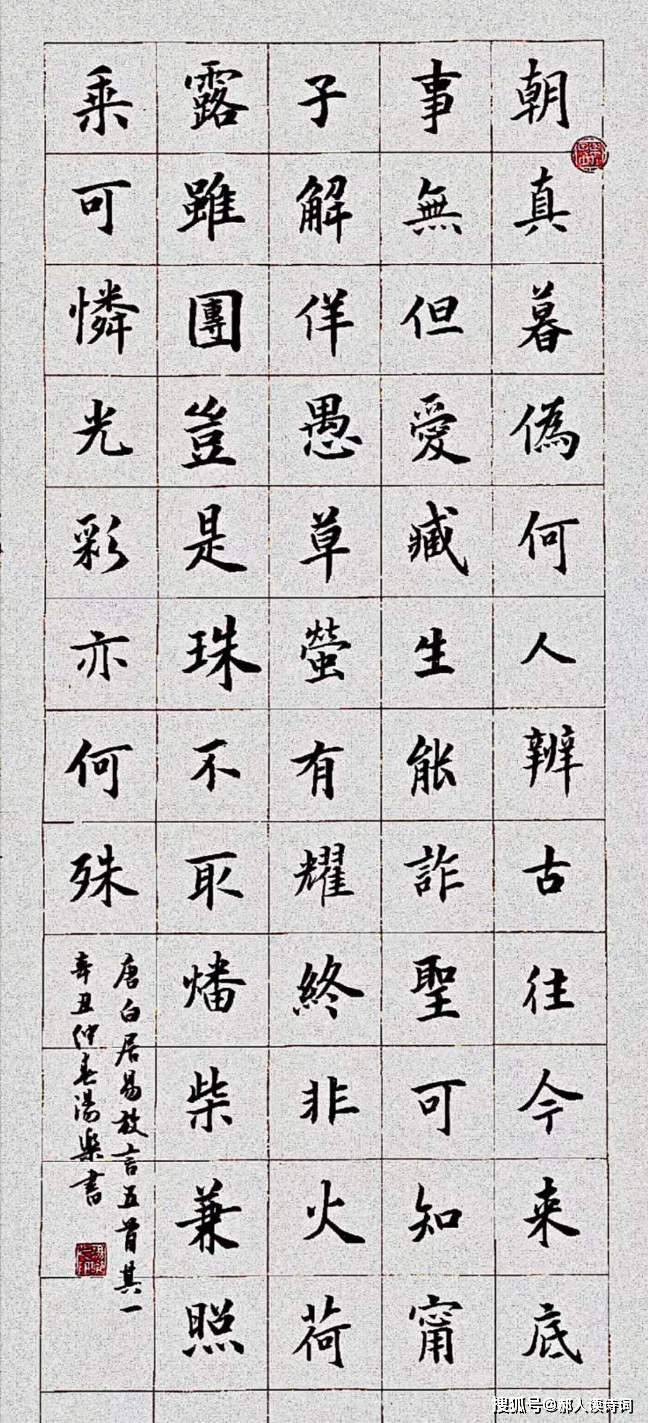 朝真暮偽何人辨古往今来底
事無但愛臧生能詐聖可知甯
子解佯愚草螢有耀終非火荷
露雖團豈是珠不取燔柴兼照
乘可憐光彩亦何殊
唐白居易放言五首其一
辛丑仲春湯樂書
搜狐号@郝人读诗词